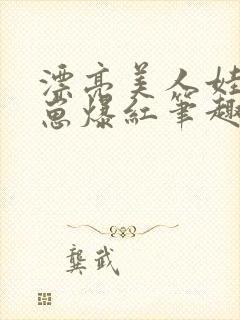 漂亮美人娃
崽爆紅筆趣
龔武